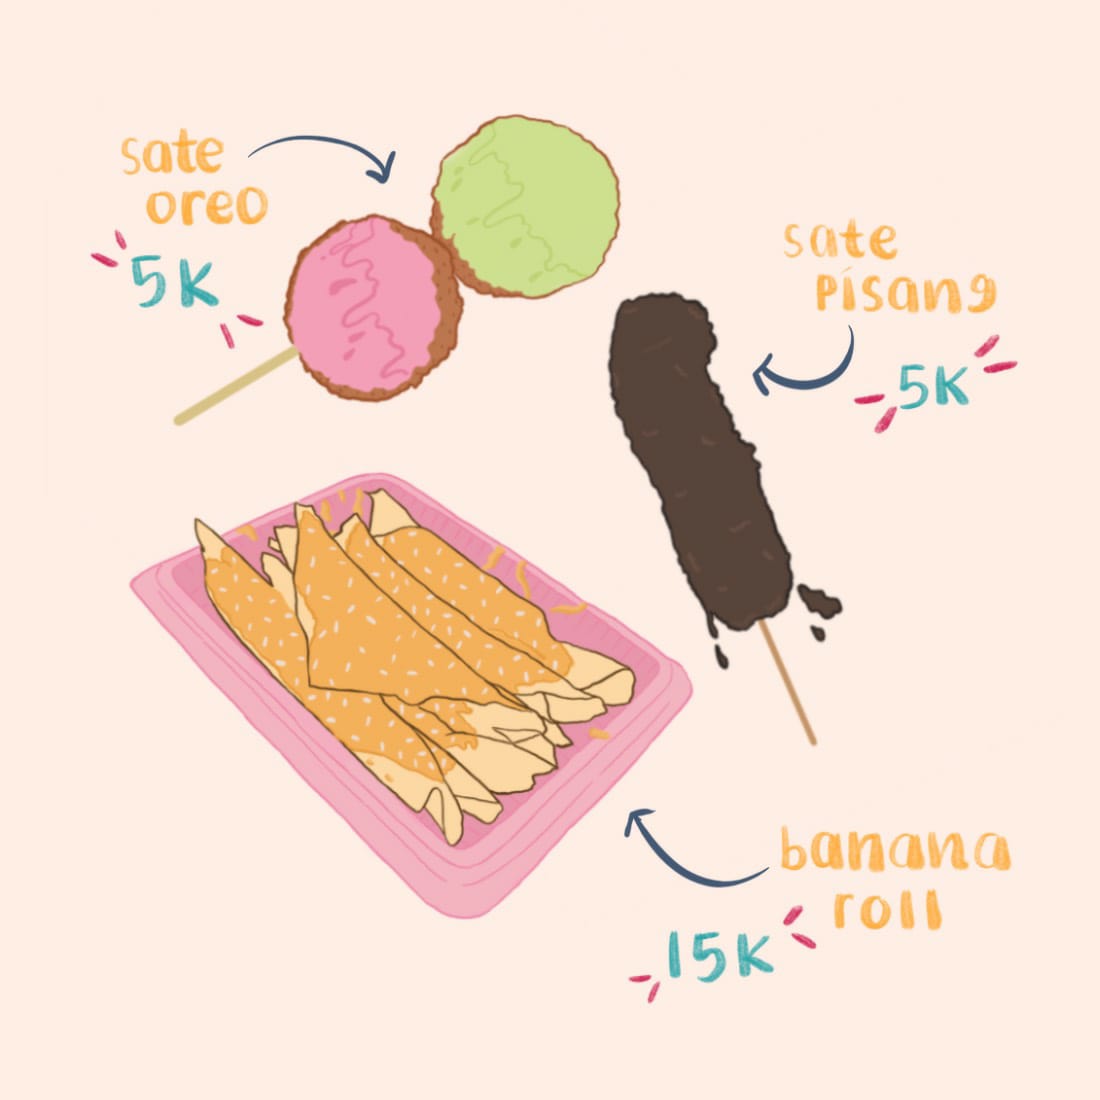 sate
oreo
5K
sate
pisang
5K
banana
roll
15K